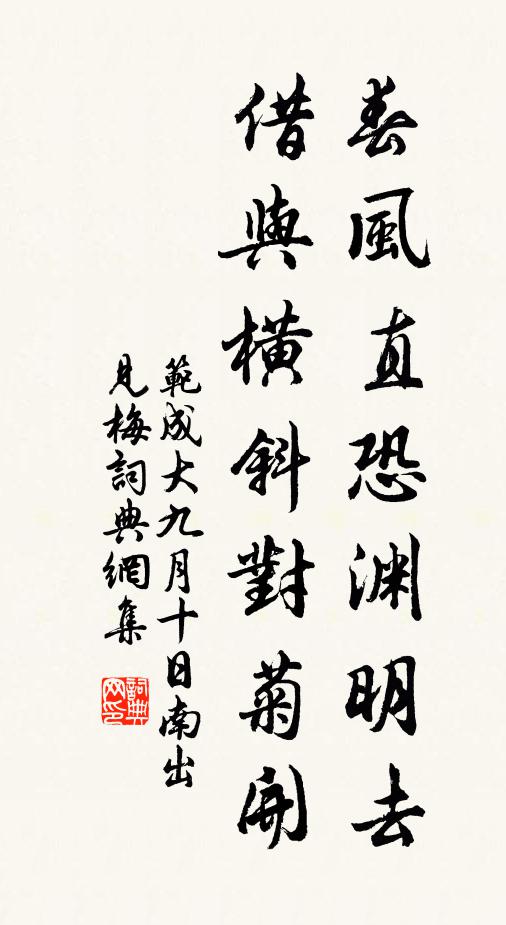 春風直恐淵明去
借與橫斜對菊開
範成大九月十日南出
見梅詞典網集
詞典
网印